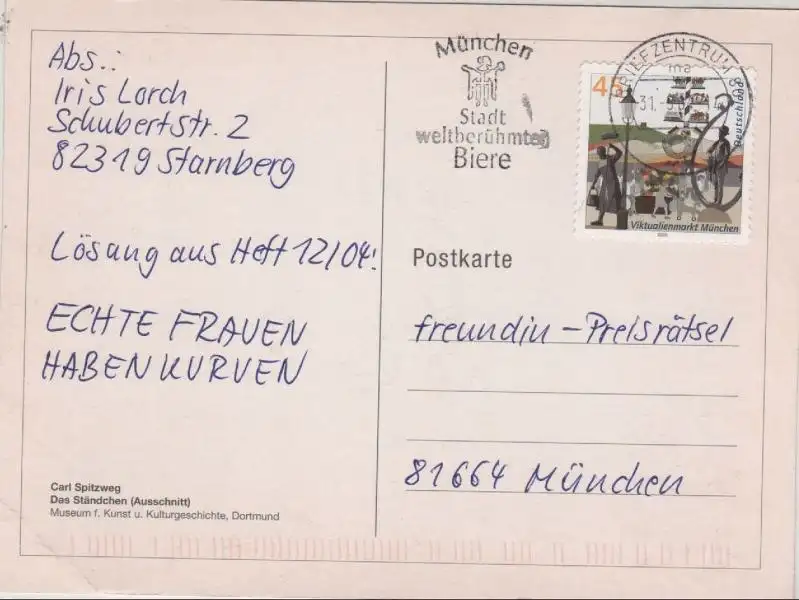 Abs.:
Iris Lorch
Schubertstr. 2
82319 Starnberg
Lösung aus Heft 12/04!
ECHTE FRAUEN
HABEN KURVEN
Carl Spitzweg
Das Ständchen (Ausschnitt)
Museum f. Kunst u. Kulturgeschichte, Dortmund
München
Stadt
weltberühmter
Biere
BRIEFZENTRUM
ma
31.
45
Deutschland
Viktualienmarkt München
Postkarte
freundin – Preisrätsel
81664 München